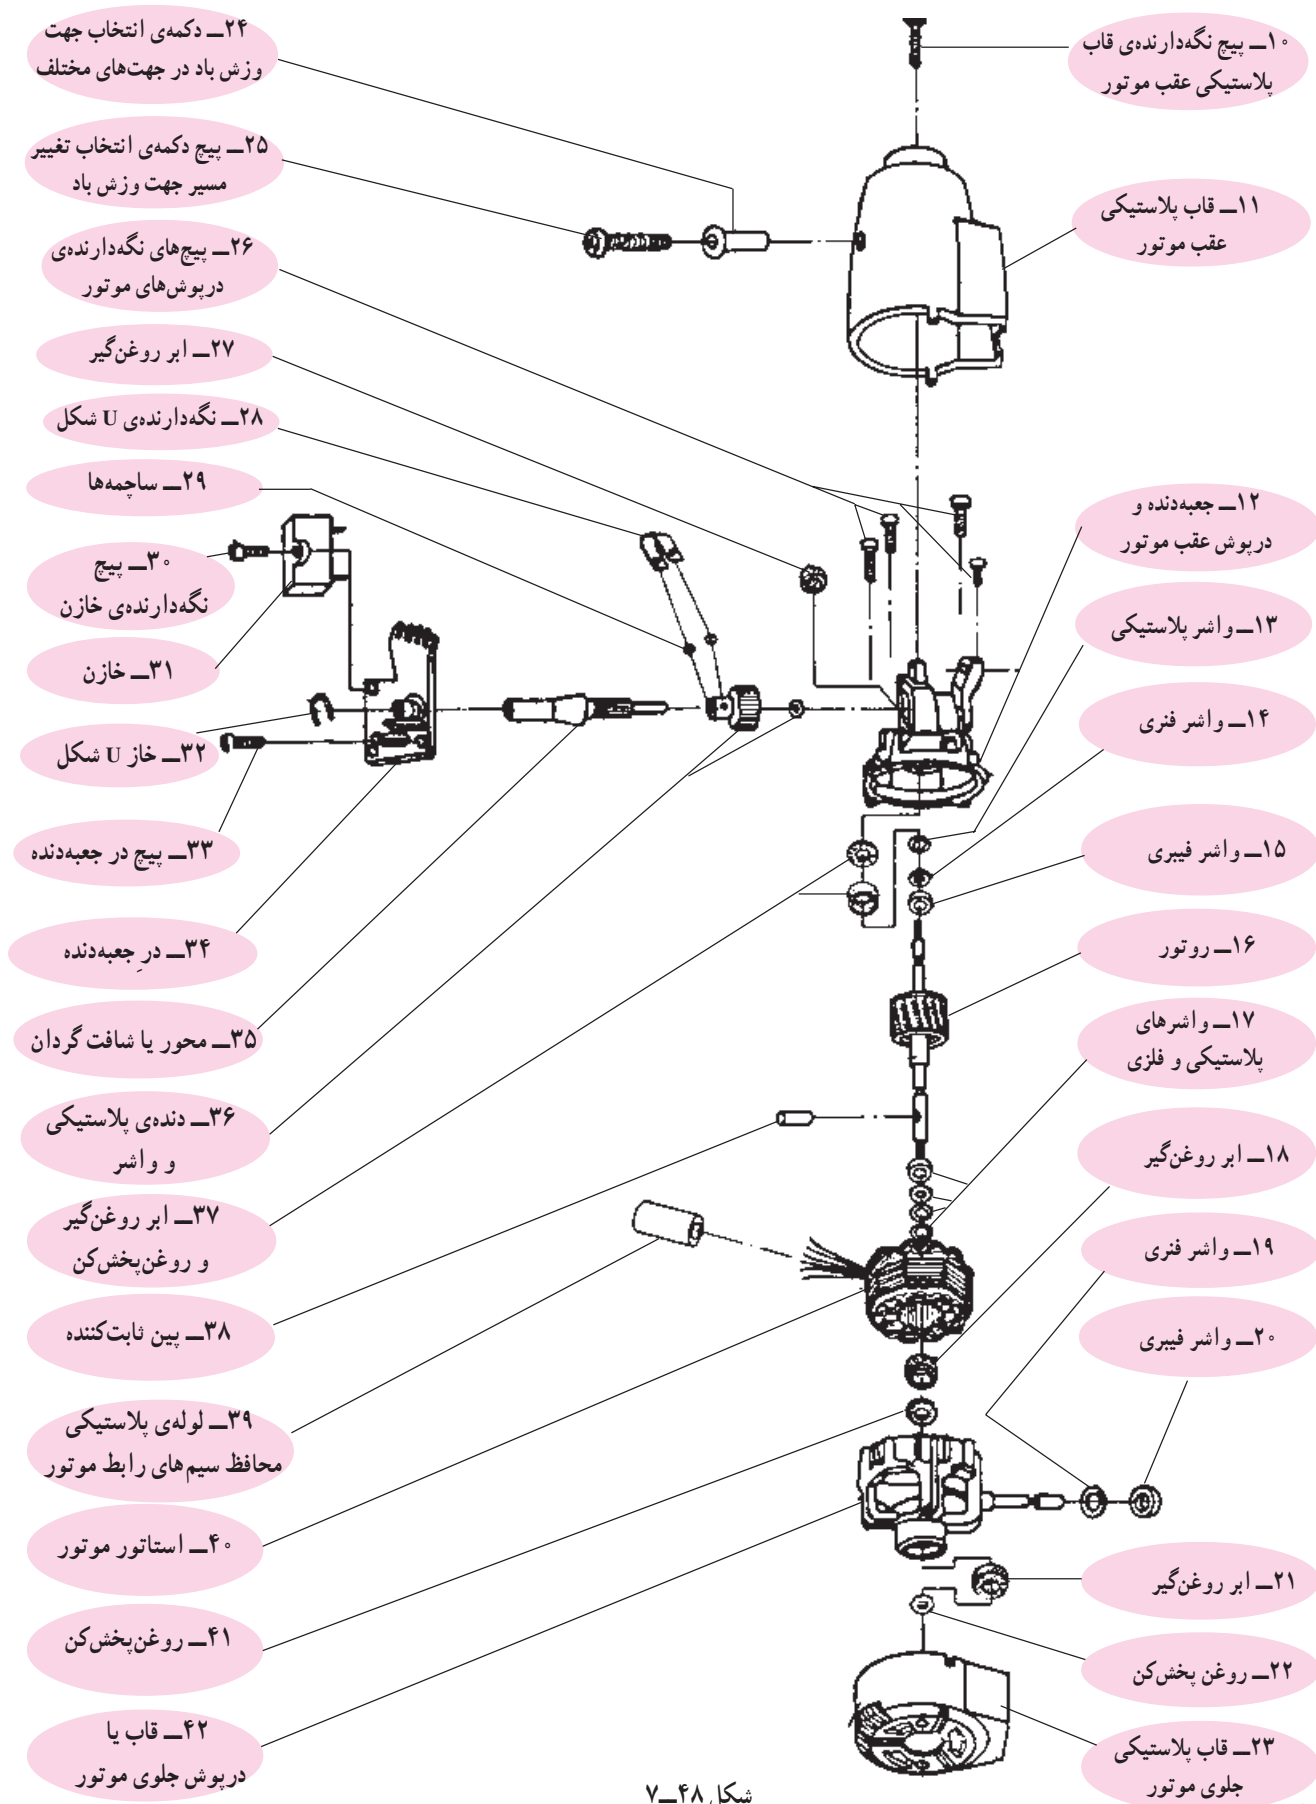 ۱۰ــ پیچ نگه‌دارنده‌ی قاب
پلاستیکی عقب موتور
۱۱ــ قاب پلاستیکی
عقب موتور
۱۲ــ جعبه‌دنده و
درپوش عقب موتور
۱۳ــ واشر پلاستیکی
۱۴ــ واشر فنری
۱۵ــ واشر فیبری
۱۶ــ روتور
۱۷ــ واشرهای
پلاستیکی و فلزی
۱۸ــ ابر روغن‌گیر
۱۹ــ واشر فنری
۲۰ــ واشر فیبری
۲۱ــ ابر روغن‌گیر
۲۲ــ روغن پخش‌کن
۲۳ــ قاب پلاستیکی
جلوی موتور
۲۴ــ دکمه‌ی انتخاب جهت
وزش باد در جهت‌های مختلف
۲۵ــ پیچ دکمه‌ی انتخاب تغییر
مسیر جهت وزش باد
۲۶ــ پیچ‌های نگه‌دارنده‌ی
درپوش‌های موتور
۲۷ــ ابر روغن‌گیر
۲۸ــ نگه‌دارنده‌ی U شکل
۲۹ــ ساچمه‌ها
۳۰ــ پیچ
نگه‌دارنده‌ی خازن
۳۱ــ خازن
۳۲ــ خاز U شکل
۳۳ــ پیچ در جعبه‌دنده
۳۴ــ درِ جعبه‌دنده
۳۵ــ محور یا شافت گردان
۳۶ــ دنده‌ی پلاستیکی
و واشر
۳۷ــ ابر روغن‌گیر
و روغن‌پخش‌کن
۳۸ــ پین ثابت‌کننده
۳۹ــ لوله‌ی پلاستیکی
محافظ سیم‌های رابط موتور
۴۰ــ استاتور موتور
۴۱ــ روغن‌پخش‌کن
۴۲ــ قاب یا
درپوش جلوی موتور
شکل ۴۸ــ۷